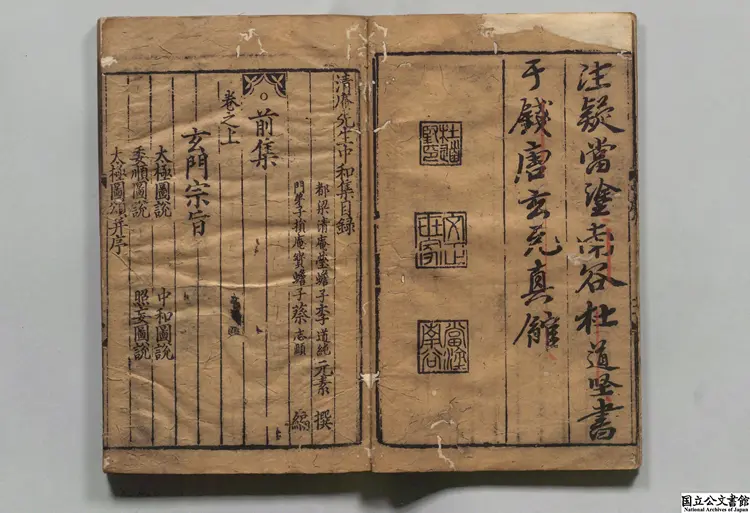 疑當塗南谷杜道坚書
于錢唐玄元真館
杜道堅印
當塗南谷
清庵先生中和集目錄
都梁清庵瑩蟾子李道純元素撰
門弟子損庵寶蟾子蔡志頤編
前集
卷之上
玄門宗旨
太極圖說 中和圖說
委順圖說 照妄圖說
太極圖頌并序
国立公文書館
National Archives of Japan